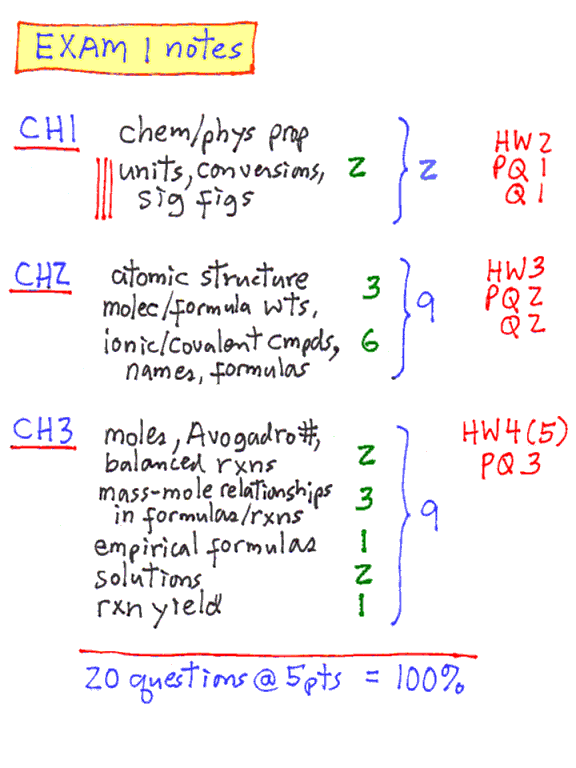 EXAM 1 notes
CH1 chem/phys prop
units, conversions, 2 } 2
sig figs
HW2
PQ 1
Q 1
CH2 atomic structure 3
molec/formula wts,
ionic/covalent cmpds, 6 } 9
names, formulas
HW3
PQ 2
Q2
CH3 moles, Avogadro #,
balanced rxns 2
mass-mole relationships 3
in formulas/rxns } 9
empirical formulas 1
solutions 2
rxn yield 1
HW4(5)
PQ3
20 questions @ 5pts = 100%